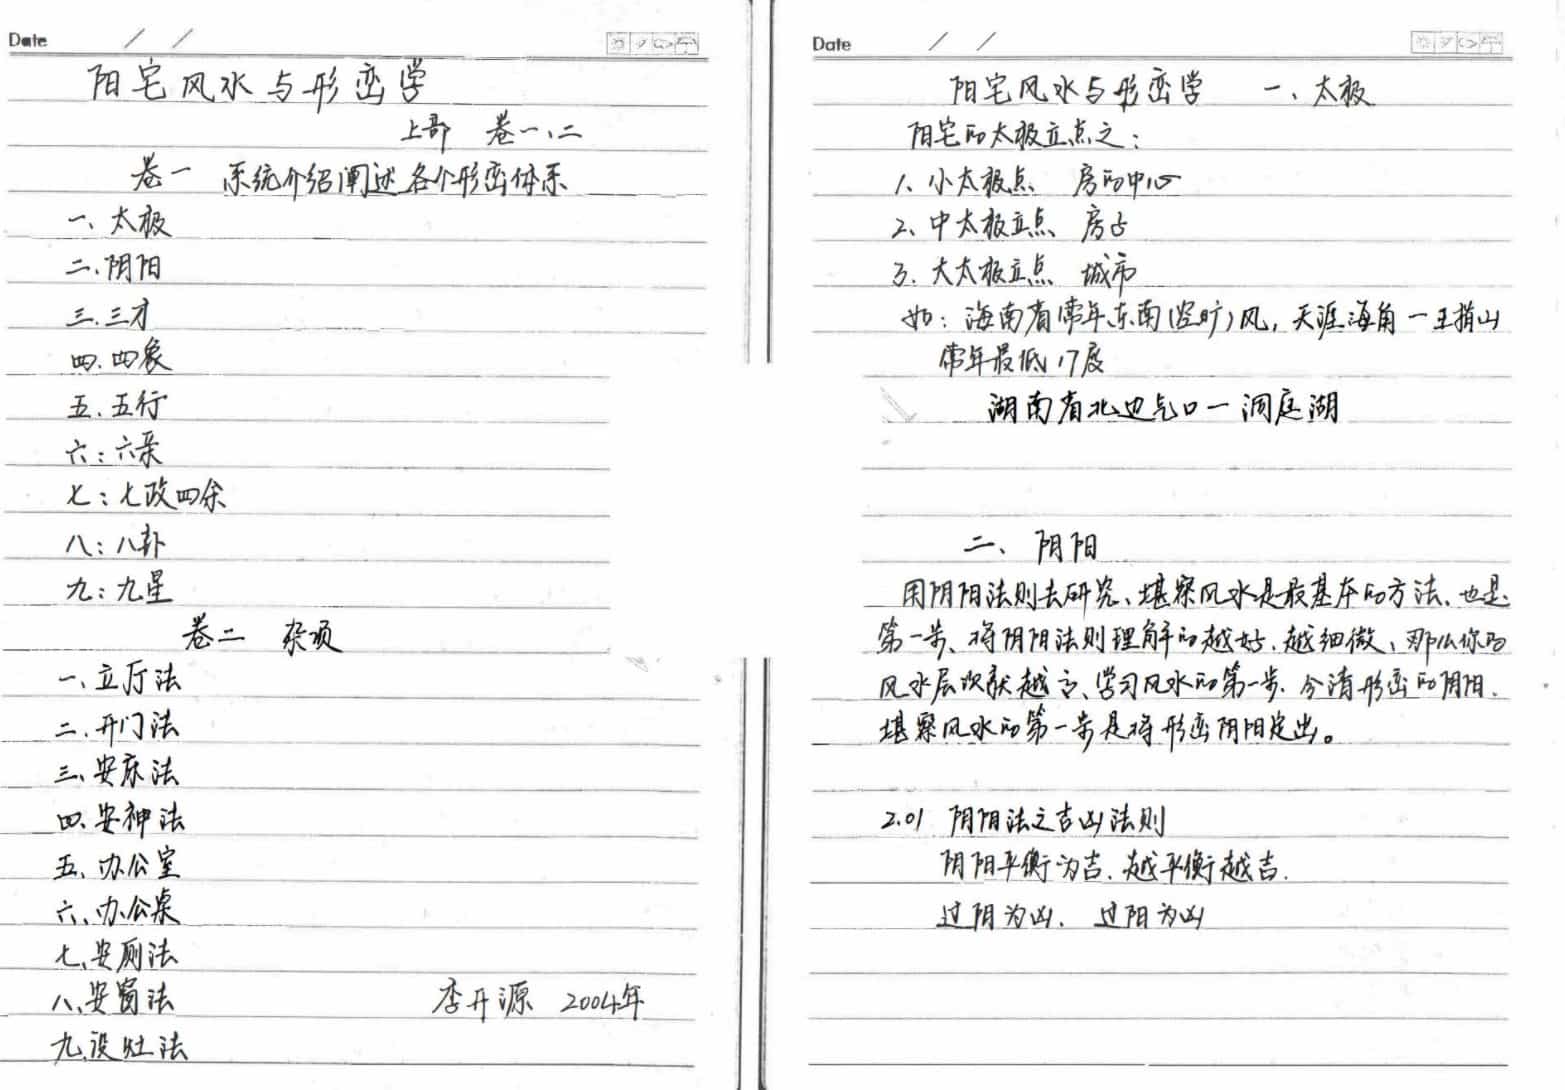 Date / /
阳宅风水与形峦学
上部 卷一、二
卷一 系统介绍阐述各个形峦体系
一、太极
二、阴阳
三、三才
四、四象
五、五行
六：六亲
七：七政四余
八：八卦
九：九星
卷二 杂项
一、立厅法
二、开门法
三、安床法
四、安神法
五、办公室
六、办公桌
七、安厕法
八、安窗法
李开源 2004年
九、设灶法
Date / /
阳宅风水与形峦学 一、太极
阳宅的太极立点之：
1、小太极点 房的中心
2、中太极立点 房占
3、大太极立点 城市
如：海南省常年东南(空旷)风，天涯海角一五指山
常年最低17度
湖南省北边气口一洞庭湖
二、阴阳
用阴阳法则去研究、堪察风水是最基本的方法、也是
第一步、将阴阳法则理解的越好、越细微、那么你的
风水层次就越高、学习风水的第一步、分清形峦的阴阳、
堪察风水的第一步是将形峦阴阳定出。
2.01 阴阳法之吉凶法则
阴阳平衡为吉、越平衡越吉.
过阴为凶. 过阳为凶